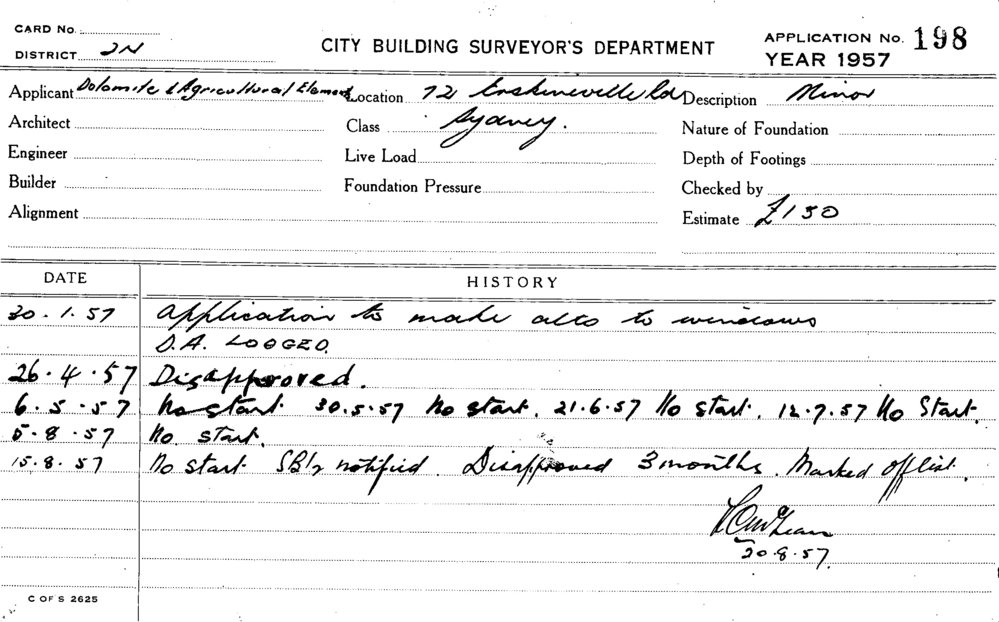 CARD No.
DISTRICT 2N
CITY BUILDING SURVEYOR'S DEPARTMENT
APPLICATION No. 198
YEAR 1957
Applicant Dolomite & Agricultural Element Location 72 Erskineville Rd Description Minor
Architect Class Sydney. Nature of Foundation
Engineer Live Load Depth of Footings
Builder Foundation Pressure Checked by
Alignment Estimate £150
DATE HISTORY
30.1.57 Application to make alts to windows
D.A. LODGED.
26.4.57 Disapproved.
6.5.57 No start. 30.5.57 No start. 21.6.57 No start. 12.7.57 No Start.
5.8.57 No start.
15.8.57 No start notified. Disapproved 3 months. Marked off list.
20.8.57.
C OF S 2625